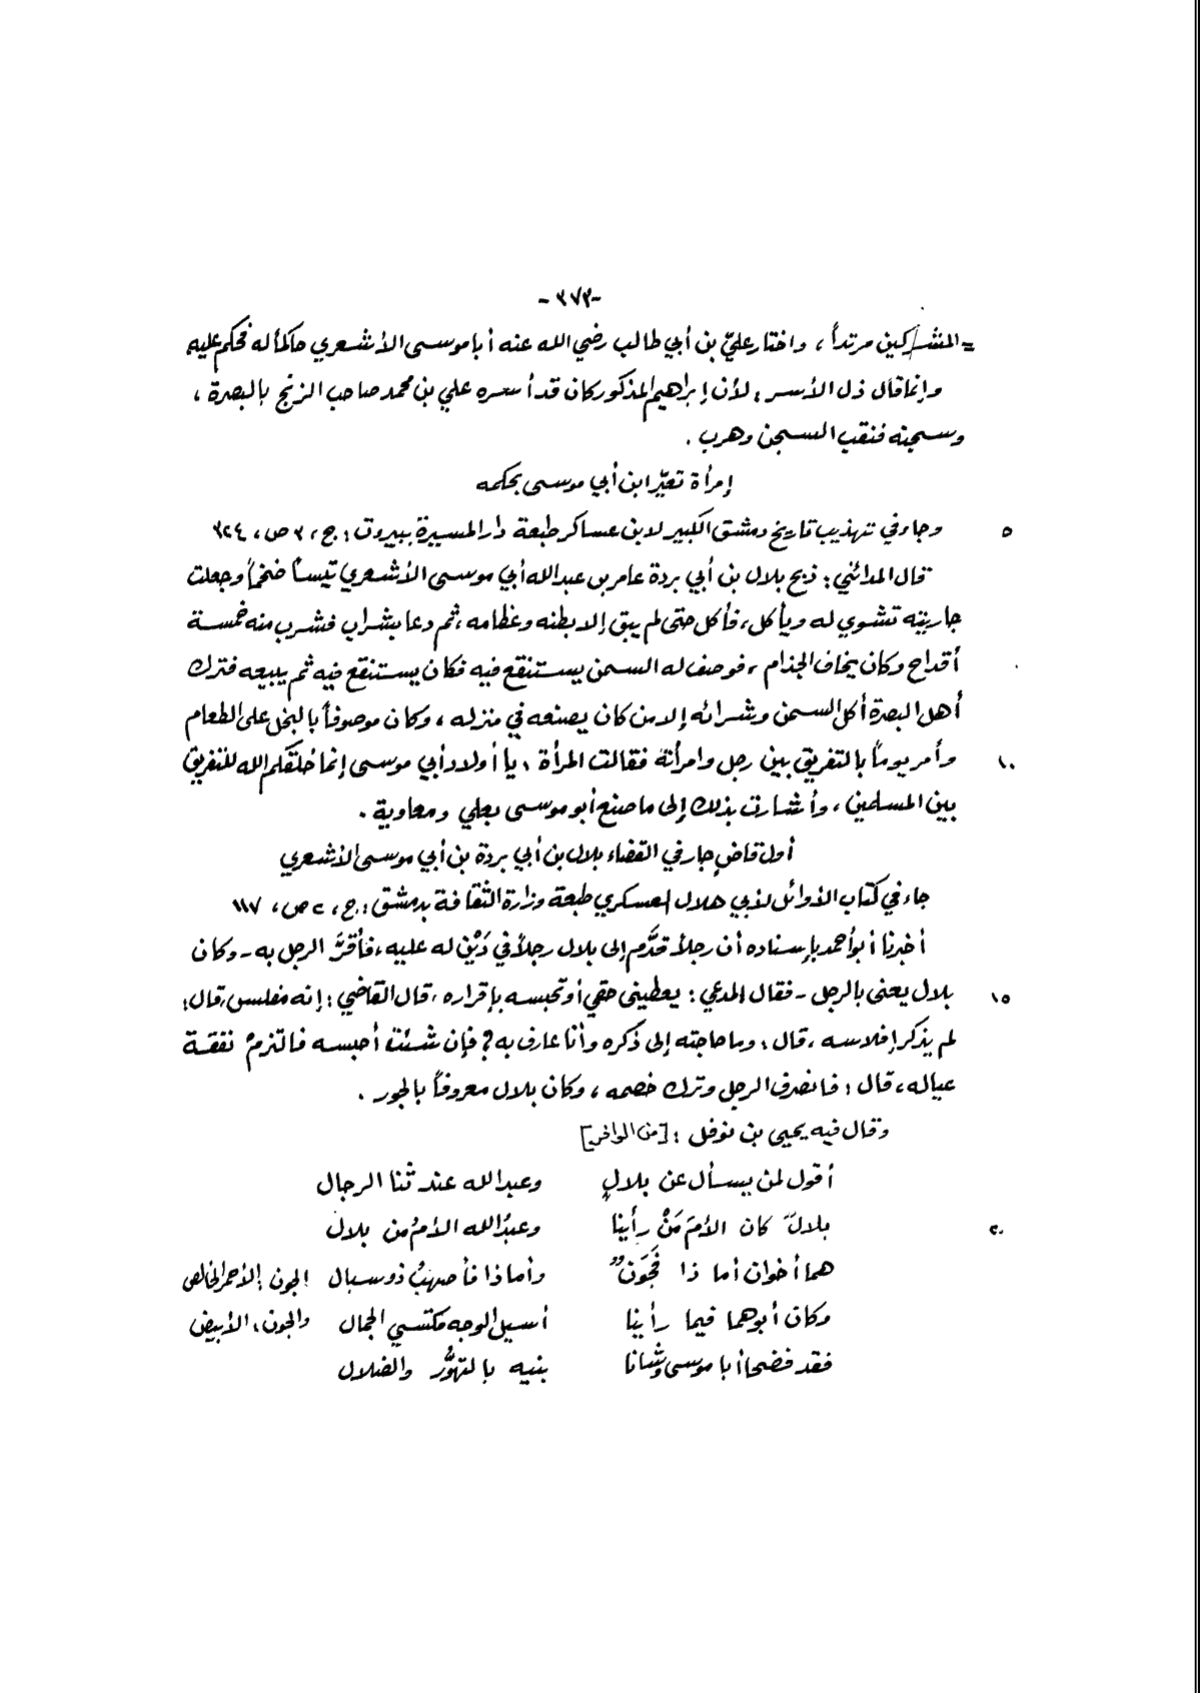 -٣٧٣-
= المشركين مرتداً ، واختار عليّ بن أبي طالب رضي الله عنه أبا موسى الأشعري حاكماً له فحكم عليه
وإنما قال ذل الأسر : لأن إبراهيم المذكور كان قد أسره علي بن محمد صاحب الزنج بالبصرة ،
وسجنه فنقب السجن وهرب .
إمرأة تعيّر ابن أبي موسى بحكمه
٥ وجاء في تهذيب تاريخ دمشق الكبير لابن عساكر طبعة دار المسيرة ببيروت : ج، ٣ ص، ٣٢٤
قال المدائني : ذبح بلال بن أبي بردة عامر بن عبد الله أبي موسى الأشعري تيساً ضخماً وجعلت
جاريته تشوي له ويأكل، فأكل حتى لم يبق إلا بطنه وعظامه ، ثم دعا بشراب فشرب منه خمسة
أقداح وكان يخاف الجذام ، فوصف له السمن يستنقع فيه فكان يستنقع فيه ثم يبيعه فترك
أهل البصرة أكل السمن وشرائه إلا من كان يصنعه في منزله ، وكان موصوفاً بالبخل على الطعام
١٠ وأمر يوماً بالتفريق بين رجل وامرأته فقالت المرأة : يا أولاد أبي موسى إنما خلقكم الله للتفريق
بين المسلمين ، وأشارت بذلك إلى ما صنع أبو موسى بعلي ومعاوية .
أول قاضٍ جار في القضاء بلال بن أبي بردة بن أبي موسى الأشعري
جاء في كتاب الأوائل لأبي هلال العسكري طبعة وزارة الثقافة بدمشق : ج، ٢ ص، ١١٧
أخبرنا أبو أحمد بإسناده أن رجلاً قدَّم إلى بلال رجلاً في دَيْن له عليه ، فأقرَّ الرجل به - وكان
١٥ بلال يعنى بالرجل - فقال المدعي : يعطيني حقي أو تحبسه بإقراره ، قال القاضي : إنه مفلس، قال :
لم يذكر إفلاسه ، قال : وما حاجته إلى ذكره وأنا عارف به ? فإن شئت أحبسه فالتزمْ نفقة
عياله ، قال : فانصرف الرجل وترك خصمه ، وكان بلال معروفاً بالجور .
وقال فيه يحيى بن نوفل : [من الوافر]
أقول لمن يسأل عن بلالٍ وعبد الله عند ثنا الرجال
٢٠ بلالٌ كان الأمَ مَنْ رأينا وعبدُ الله الأمُ من بلال
هما أخوان أما ذا فَجَونٌ وأما ذا فأصهبُ ذو سبال الجون : الأحمر الخالص
وكان أبوهما فيما رأينا أسيل الوجه مكتسي الجمال والجون : الأبيض
فقد فضحا أبا موسى وشانا بنيه بالتهوُّر والضلال